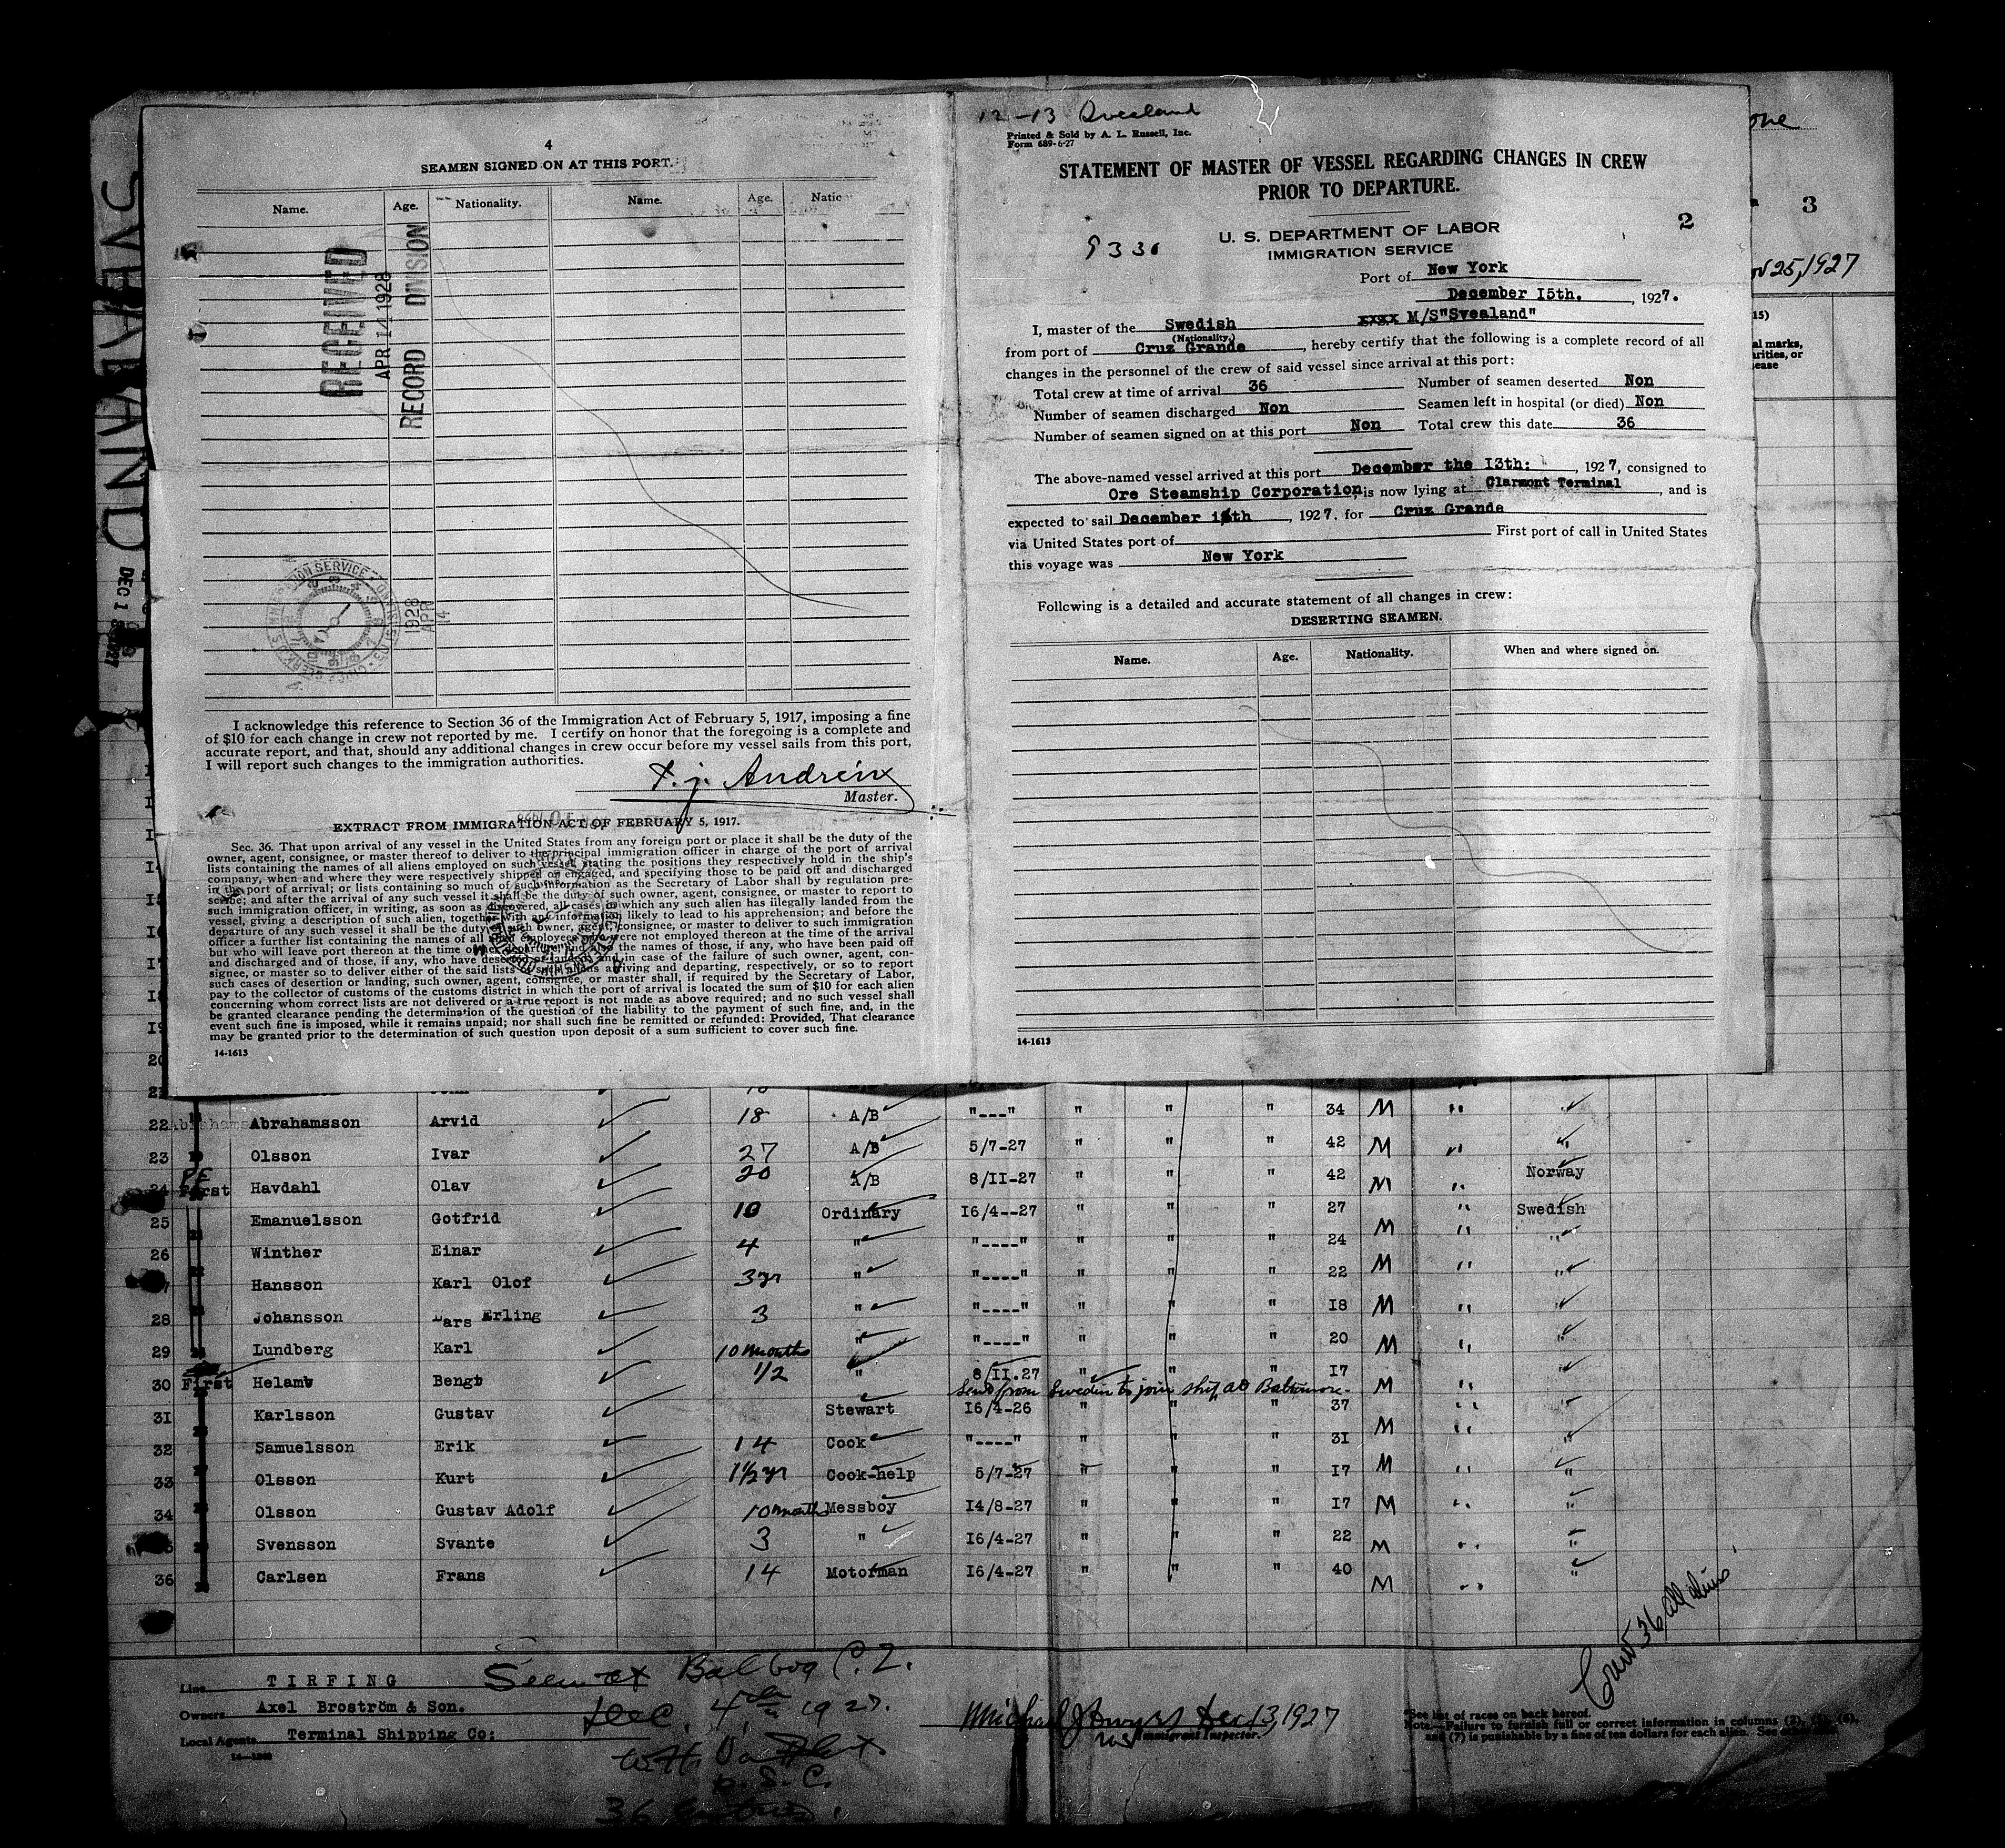 4
SEAMEN SIGNED ON AT THIS PORT.
Name. Age. Nationality. Name. Age. Natio
RECEIVED
APR 14 1928
RECORD DIVISION
1928
APR
14
I acknowledge this reference to Section 36 of the Immigration Act of February 5, 1917, imposing a fine
of $10 for each change in crew not reported by me. I certify on honor that the foregoing is a complete and
accurate report, and that, should any additional changes in crew occur before my vessel sails from this port,
I will report such changes to the immigration authorities.
Master.
EXTRACT FROM IMMIGRATION ACT OF FEBRUARY 5, 1917.
Sec. 36. That upon arrival of any vessel in the United States from any foreign port or place it shall be the duty of the
owner, agent, consignee, or master thereof to deliver to the principal immigration officer in charge of the port of arrival
lists containing the names of all aliens employed on such vessel, stating the positions they respectively hold in the ship's
company, when and where they were respectively shipped or engaged, and specifying those to be paid off and discharged
in the port of arrival; or lists containing so much of such information as the Secretary of Labor shall by regulation pre-
scribe; and after the arrival of any such vessel it shall be the duty of such owner, agent, consignee, or master to report to
such immigration officer, in writing, as soon as discovered, all cases in which any such alien has illegally landed from the
vessel, giving a description of such alien, together with any information likely to lead to his apprehension; and before the
departure of any such vessel it shall be the duty of such owner, agent, consignee, or master to deliver to such immigration
officer a further list containing the names of all alien employees who were not employed thereon at the time of the arrival
but who will leave port thereon at the time of her departure, and also the names of those, if any, who have been paid off
and discharged and of those, if any, who have deserted or landed; and in case of the failure of such owner, agent, con-
signee, or master so to deliver either of the said lists of such aliens arriving and departing, respectively, or so to report
such cases of desertion or landing, such owner, agent, consignee, or master shall, if required by the Secretary of Labor,
pay to the collector of customs of the customs district in which the port of arrival is located the sum of $10 for each alien
concerning whom correct lists are not delivered or a true report is not made as above required; and no such vessel shall
be granted clearance pending the determination of the question of the liability to the payment of such fine, and, in the
event such fine is imposed, while it remains unpaid; nor shall such fine be remitted or refunded: Provided, That clearance
may be granted prior to the determination of such question upon deposit of a sum sufficient to cover such fine.
14-1613
12-13 Svealand
Printed & Sold by A. L. Russell, Inc.
Form 689-6-27
STATEMENT OF MASTER OF VESSEL REGARDING CHANGES IN CREW
PRIOR TO DEPARTURE.
2
U. S. DEPARTMENT OF LABOR
IMMIGRATION SERVICE
Port of New York
December 15th. , 1927.
I, master of the Swedish xxxx M/S"Svealand"
(Nationality.)
from port of Cruz Grande , hereby certify that the following is a complete record of all
changes in the personnel of the crew of said vessel since arrival at this port:
Total crew at time of arrival 36 Number of seamen deserted Non
Number of seamen discharged Non Seamen left in hospital (or died) Non
Number of seamen signed on at this port Non Total crew this date 36
The above-named vessel arrived at this port December the 13th: , 1927, consigned to
Ore Steamship Corporation, is now lying at Clarmont Terminal , and is
expected to sail December , 1927. for Cruz Grande
via United States port of First port of call in United States
this voyage was New York
Following is a detailed and accurate statement of all changes in crew:
DESERTING SEAMEN.
Name. Age. Nationality. When and where signed on.
14-1613
3
25, 1927
SVEALAND
22 Abrahamsson Arvid 18 A/B "---" " " " 34 M "
23 Olsson Ivar 27 A/B 5/7-27 " " " 42 M "
First Havdahl Olav 20 A/B 8/II-27 " " " 42 M " Norway
25 Emanuelsson Gotfrid 10 Ordinary I6/4--27 " " " 27 M " Swedish
26 Winther Einar 4 " "----" " " " 24 M " "
Hansson Karl Olof 3yr " "----" " " " 22 M " "
28 Johansson Lars Erling 3 " "----" " " " I8 M " "
29 Lundberg Karl 10 months " "----" " " " 20 M " "
30 First Helamb Bengt 1/2 " 8/II.27 " " " I7 M "
Send from Sweden to join ship at Baltimore.
3I Karlsson Gustav Stewart I6/4-26 " " " 37 M "
32 Samuelsson Erik 14 Cook "----" " " " 3I M " "
33 Olsson Kurt 1½yr Cook-help 5/7-27 " " " I7 M " "
34 Olsson Gustav Adolf 10months Messboy I4/8-27 " " " I7 M " "
Svensson Svante 3 " I6/4-27 " " " 22 M " "
36 Carlsen Frans 14 Motorman I6/4-27 " " " 40 M " "
Line TIRFING
Owners Axel Broström & Son.
Local Agents Terminal Shipping Co:
Seen at Balboa C.Z.
Dec. 4th 1927.
Dec 13, 1927
Immigrant Inspector.
Crew 36 all aliens
*See list of races on back hereof.
Note.—Failure to furnish full or correct information in columns
and (7) is punishable by a fine of ten dollars for each alien.